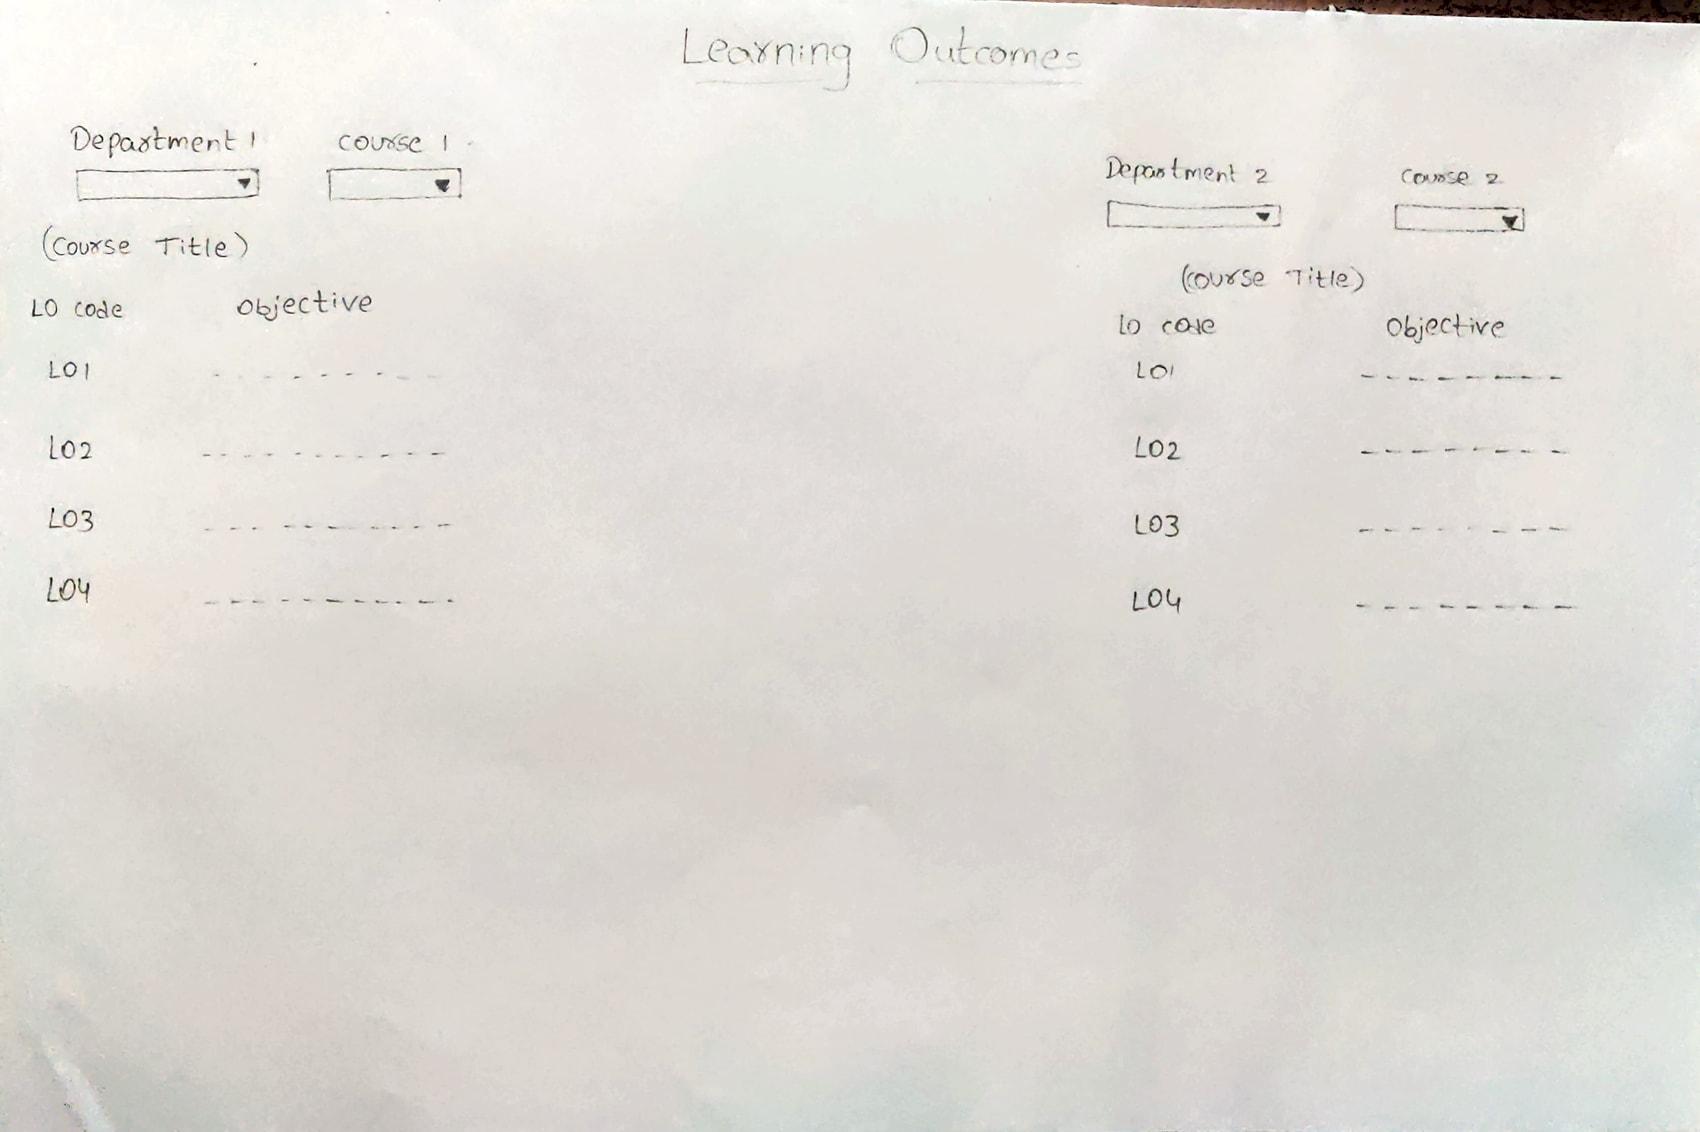 Learning Outcomes
Department 1 course 1
(Course Title)
LO code objective
LO1
LO2
LO3
LO4
Department 2 course 2
(course Title)
LO code objective
LO1
LO2
LO3
LO4